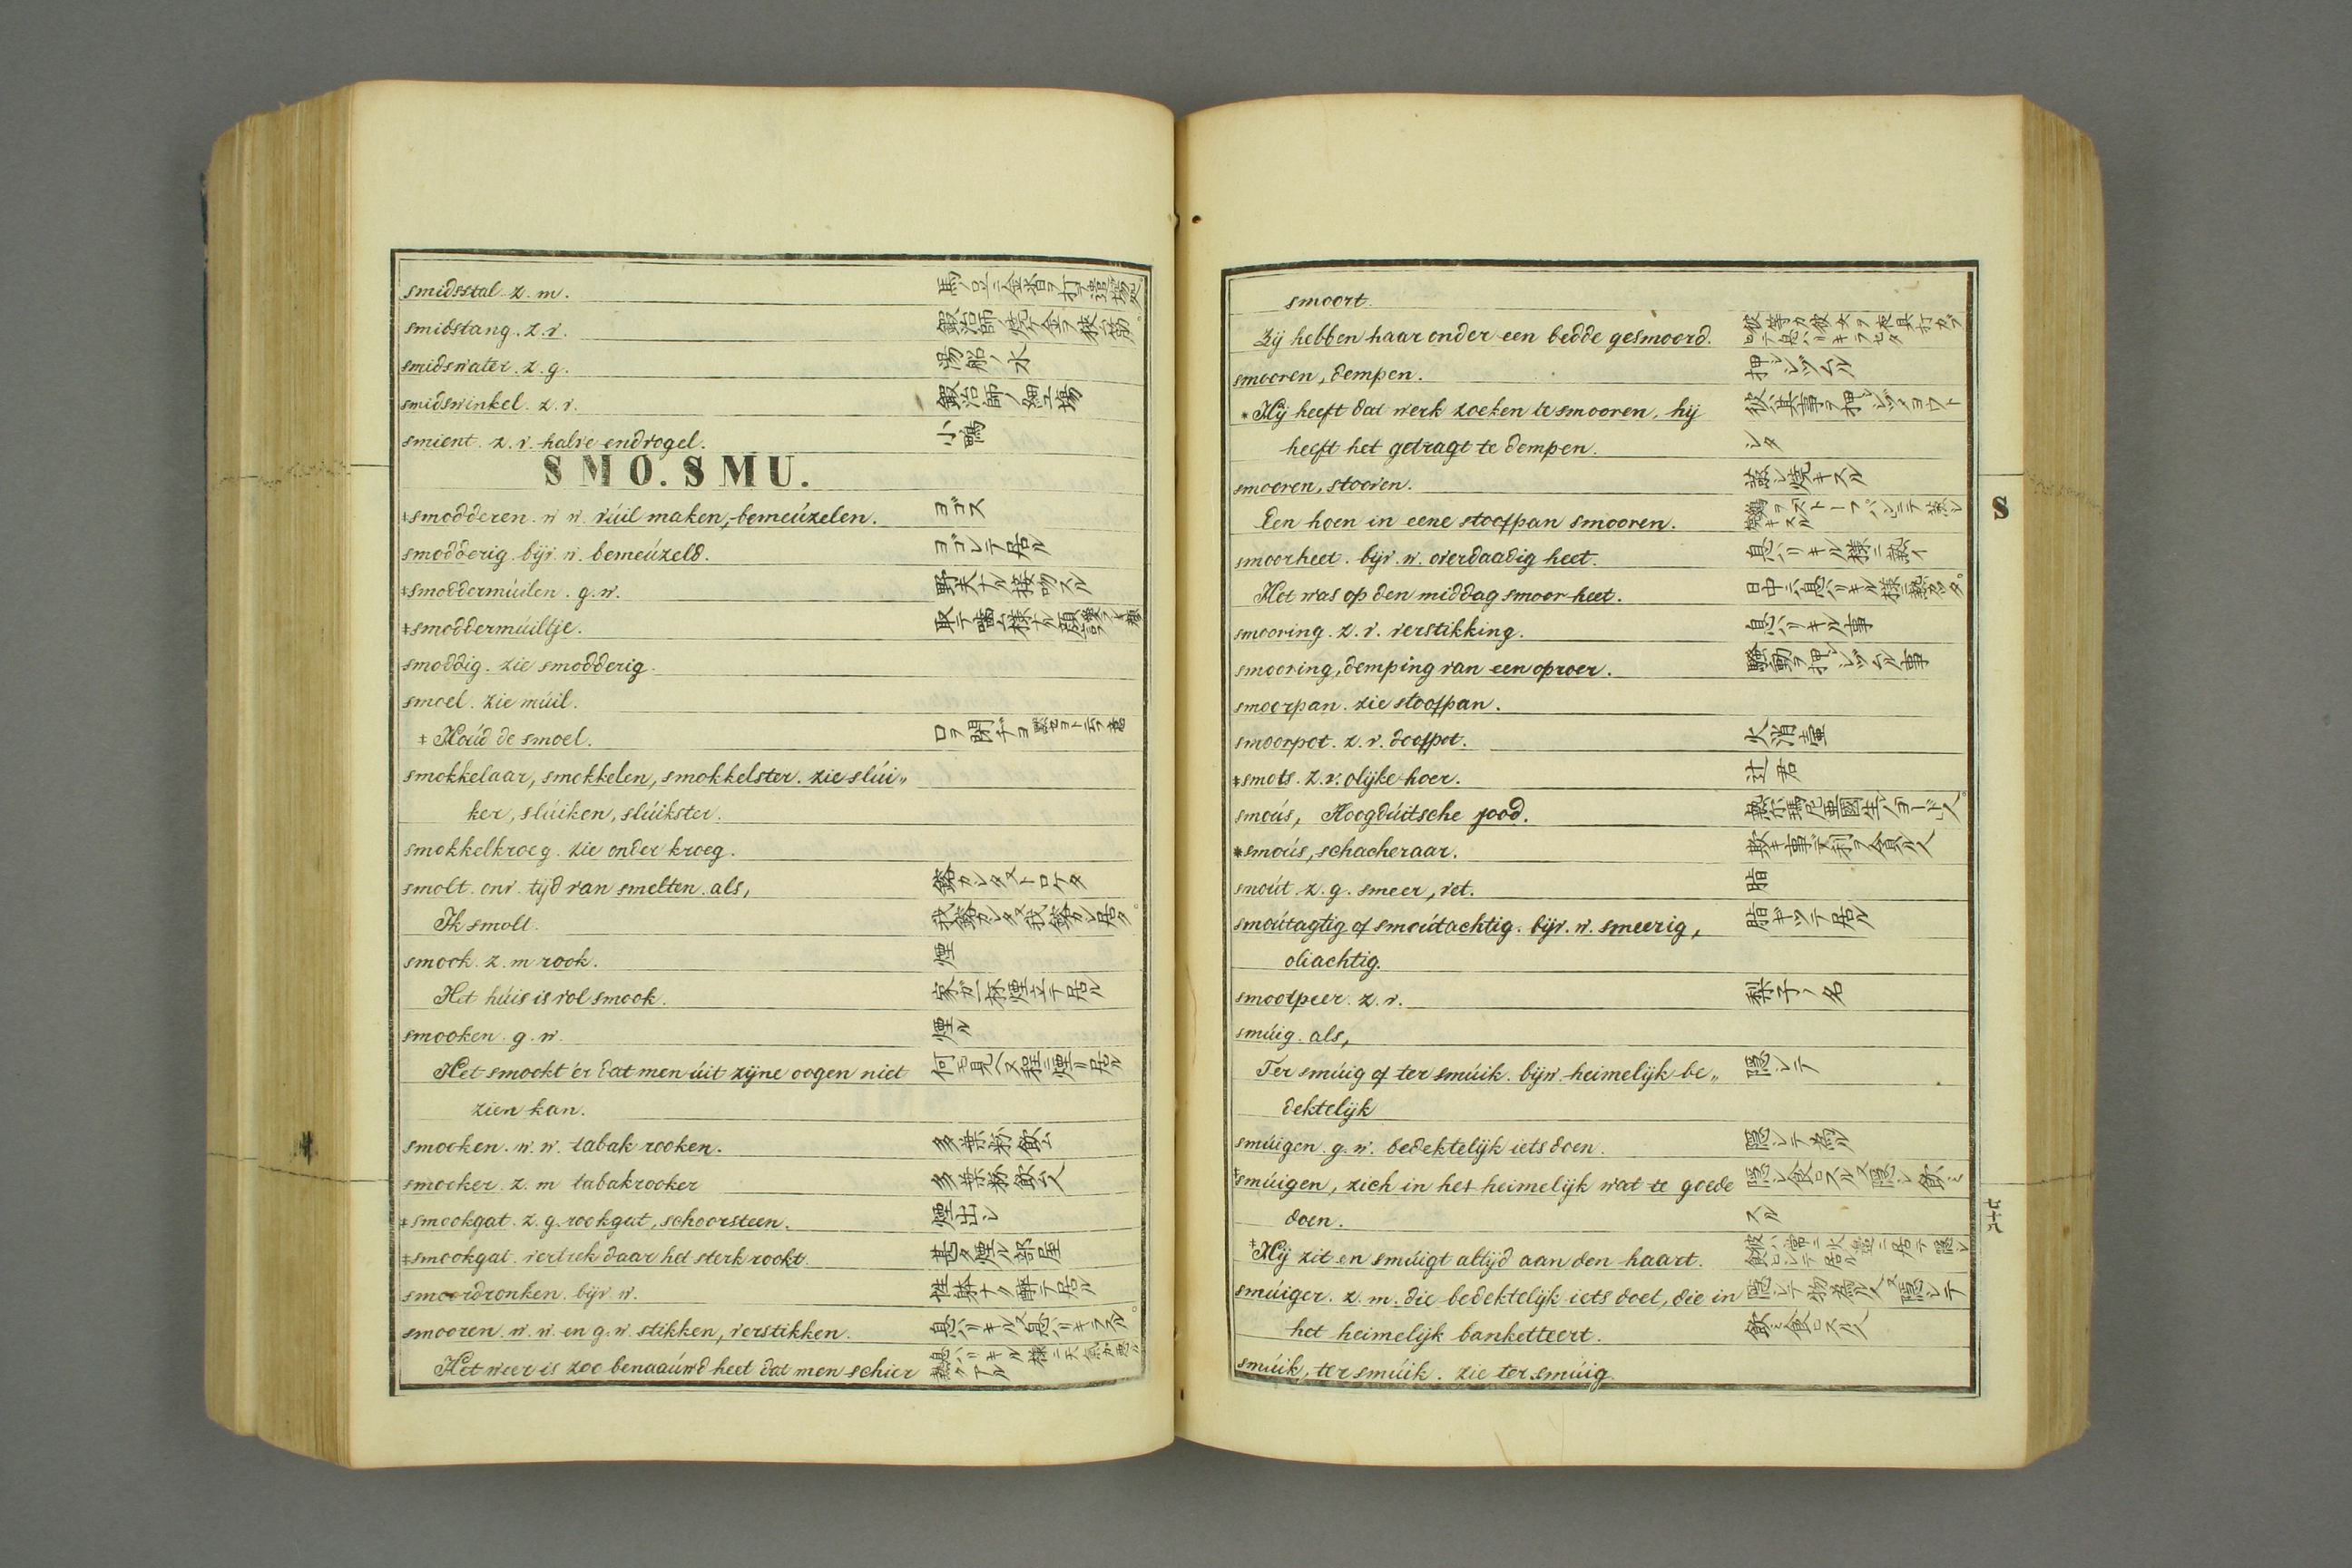 smidsstal. z. m.
smidstang. z. v. 鍛冶師ノ焼ケ金ヲ挟ム筋。
smidswater. z. g. 湯船ノ水
smidswinkel. z. v. 鍛冶師ノ細工場
smient. z. v. halve endvogel. 小鴨
SMO. SMU.
‡smodderen. w. w. vúil maken, bemeúzelen. ヨゴス
smodderig. bijv. w. bemeúzeld. ヨゴレテ居ル
‡smoddermúilen. g. w. 野夫ナル接吻スル
‡smoddermúiltje.
smoddig. zie smodderig.
smoel. zie múil.
‡ Hoúd de smoel. 口ヲ閉ヂヨ 黙セヨト云フ意
smokkelaar, smokkelen, smokkelster. zie slúi„
ker, slúiken, slúikster.
smokkelkroeg. zie onder kroeg.
smolt. onv. tijd van smelten. als,
Ik smolt.
smook. z. m rook. 煙
Het húis is vol smook. 家ガ一杯煙立テ居ル
smooken. g. w. 煙ル
Het smookt 'er dat men úit zijne oogen niet 何モ見ヘヌ程ニ煙リ居ル
zien kan.
smooken. w. w. tabak rooken. 多葉粉飲ム
smooker. z. m tabakrooker 多葉粉飲ム人
‡smookgat. z. g. rookgat, schoorsteen. 煙出シ
‡smookgat. vertrek daar het sterk rookt. 甚タ煙ル部屋
smoordronken. bijv. w. 性躰ナク酔テ居ル
smooren. w. w. en g. w. stikken, verstikken. 息ハリキル又息ハリキラスル。
Het weer is zoo benaaúwd heet dat men schier 息ハリキル様ニ天氣ガ悪ル熱クアル
smoort.
Zij hebben haar onder een bedde gesmoord.
smooren, dempen. 押シシヅムル
* Hij heeft dat werk zoeken te smooren, hij 彼ハ其事ヲ押シシヅメヨウト
heeft het getragt te dempen. シタ
smooren, stooven. 蒸シ焼キスル
Een hoen in eene stoofpan smooren. 鶏ヲストーフパンニテ蒸シ焼キスル
smoorheet. bijv. w. overdaadig heet. 息ハリキル様ニ熱イ
Het was op den middag smoor heet. 日中ニハ息ハリキル様ニ熱カツタ。
smooring. z. v. verstikking. 息ハリキル事
smooring, demping van een oproer. 騒動ヲ押シシヅムル事
smoorpan. zie stoofpan.
smoorpot. z. v. doofpot. 火消壷
‡smots. z. v. olijke hoer. 辻君
smoús, Hoogdúitsche jood.
*smoús, schacheraar.
smoút z. g. smeer, vet. 脂
smoútagtig of smoútachtig. bijv. w. smeerig, 脂キツテ居ル
oliachtig.
smootpeer. z. v. 梨子ノ名
smúig. als,
Ter smúig of ter smúik. bijw. heimelijk be„ 隠シテ
dektelijk
smúigen. g. w. bedektelijk iets doen. 隠シテ為ル
‡smúigen, zich in het heimelijk wat te goede 隠シ食ヒスル又隠シ飲ミ
doen. スル
‡Hij zit en smúigt altijd aan den haart.
smúiger. z. m. die bedektelijk iets doet, die in 隠シテ物為ル人又隠シテ
het heimelijk banketteert. 飲ミ食ヒスル人
smúik, ter smúik. zie ter smúig
S
七十六